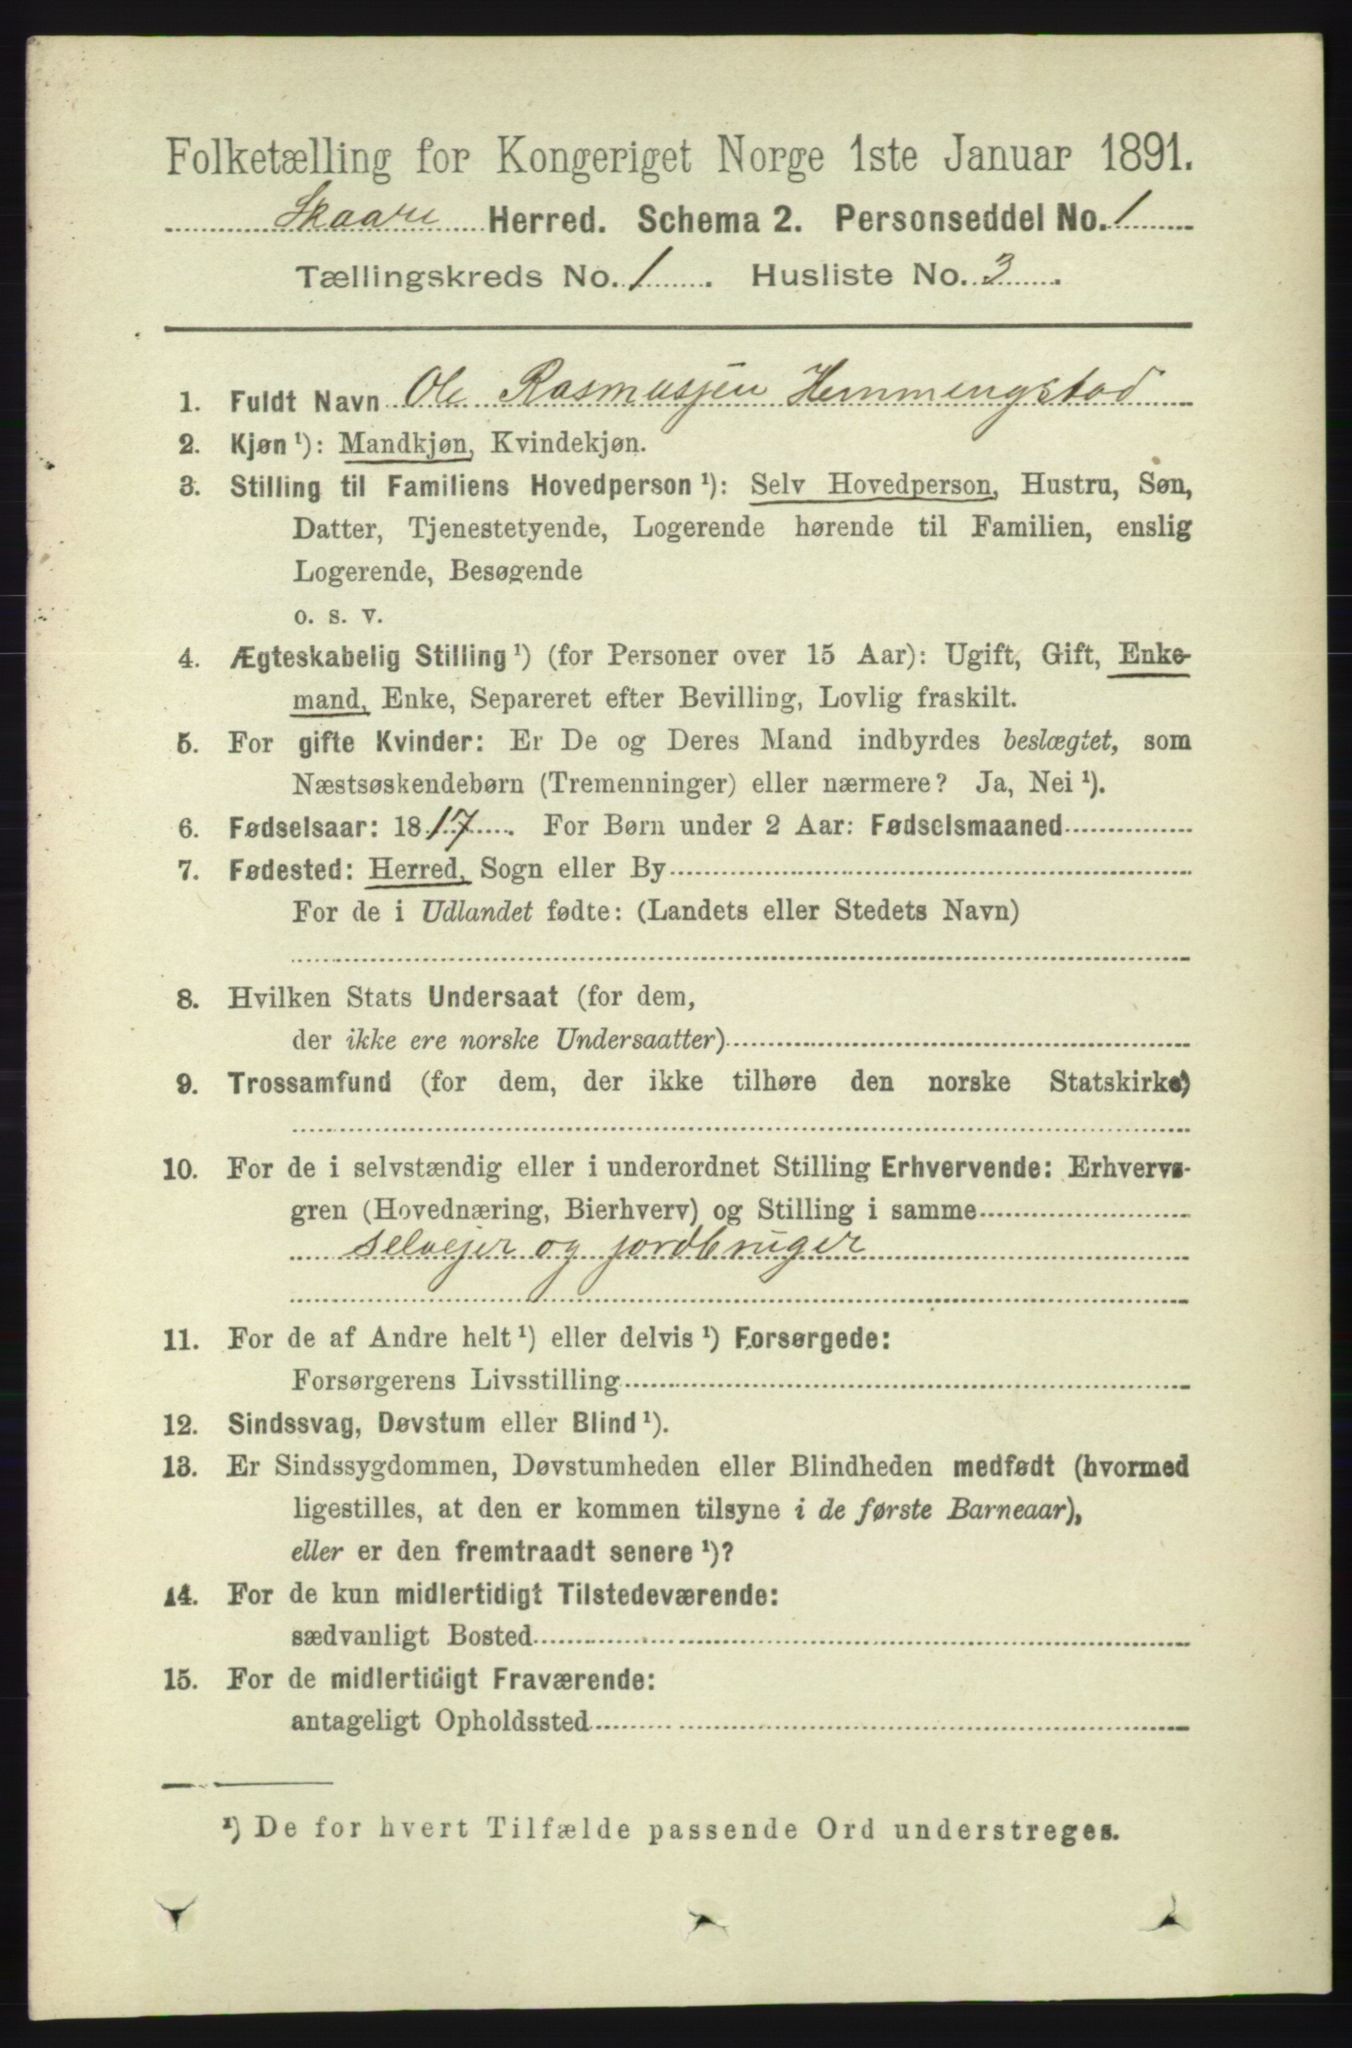 Folketælling for Kongeriget Norge 1ste Januar 1891.
Skaare Herred. Schema 2. Personseddel No. 1
Tællingskreds No. 1. Husliste No. 3.
1. Fuldt Navn Ole Rasmussen Hemmingstad
2. Kjøn ¹): Mandkjøn, Kvindekjøn.
3. Stilling til Familiens Hovedperson ¹): Selv Hovedperson, Hustru, Søn,
Datter, Tjenestetyende, Logerende hørende til Familien, enslig
Logerende, Besøgende
o. s. v.
4. Ægteskabelig Stilling ¹) (for Personer over 15 Aar): Ugift, Gift, Enke-
mand, Enke, Separeret efter Bevilling, Lovlig fraskilt.
5. For gifte Kvinder: Er De og Deres Mand indbyrdes beslægtet, som
Næstsøskendebørn (Tremenninger) eller nærmere? Ja, Nei ¹).
6. Fødselsaar: 1817. For Børn under 2 Aar: Fødselsmaaned
7. Fødested: Herred, Sogn eller By
For de i Udlandet fødte: (Landets eller Stedets Navn)
8. Hvilken Stats Undersaat (for dem,
der ikke ere norske Undersaatter)
9. Trossamfund (for dem, der ikke tilhøre den norske Statskirke)
10. For de i selvstændig eller i underordnet Stilling Erhvervende: Erhvervs-
gren (Hovednæring, Bierhverv) og Stilling i samme
selvejer og jordbruger
11. For de af Andre helt ¹) eller delvis ¹) Forsørgede:
Forsørgerens Livsstilling
12. Sindssvag, Døvstum eller Blind ¹).
13. Er Sindssygdommen, Døvstumheden eller Blindheden medfødt (hvormed
ligestilles, at den er kommen tilsyne i de første Barneaar),
eller er den fremtraadt senere ¹)?
14. For de kun midlertidigt Tilstedeværende:
sædvanligt Bosted
15. For de midlertidigt Fraværende:
antageligt Opholdssted
¹) De for hvert Tilfælde passende Ord understreges.